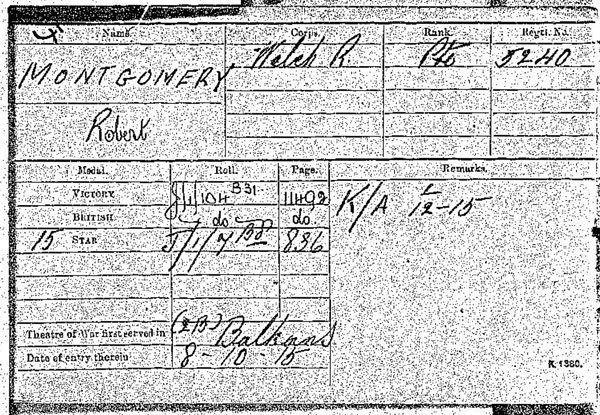 Name. Corps. Rank. Regtl. No.
MONTGOMERY Welch R. Pte 5240
Robert
Medal. Roll. Page. Remarks.
VICTORY J/1/104 B31 11492 K/A 12-15
BRITISH do do.
15 STAR J/1/7 B8 836
Theatre of War first served in (2B) Balkans
Date of entry therein 8-10-15
K 1380.